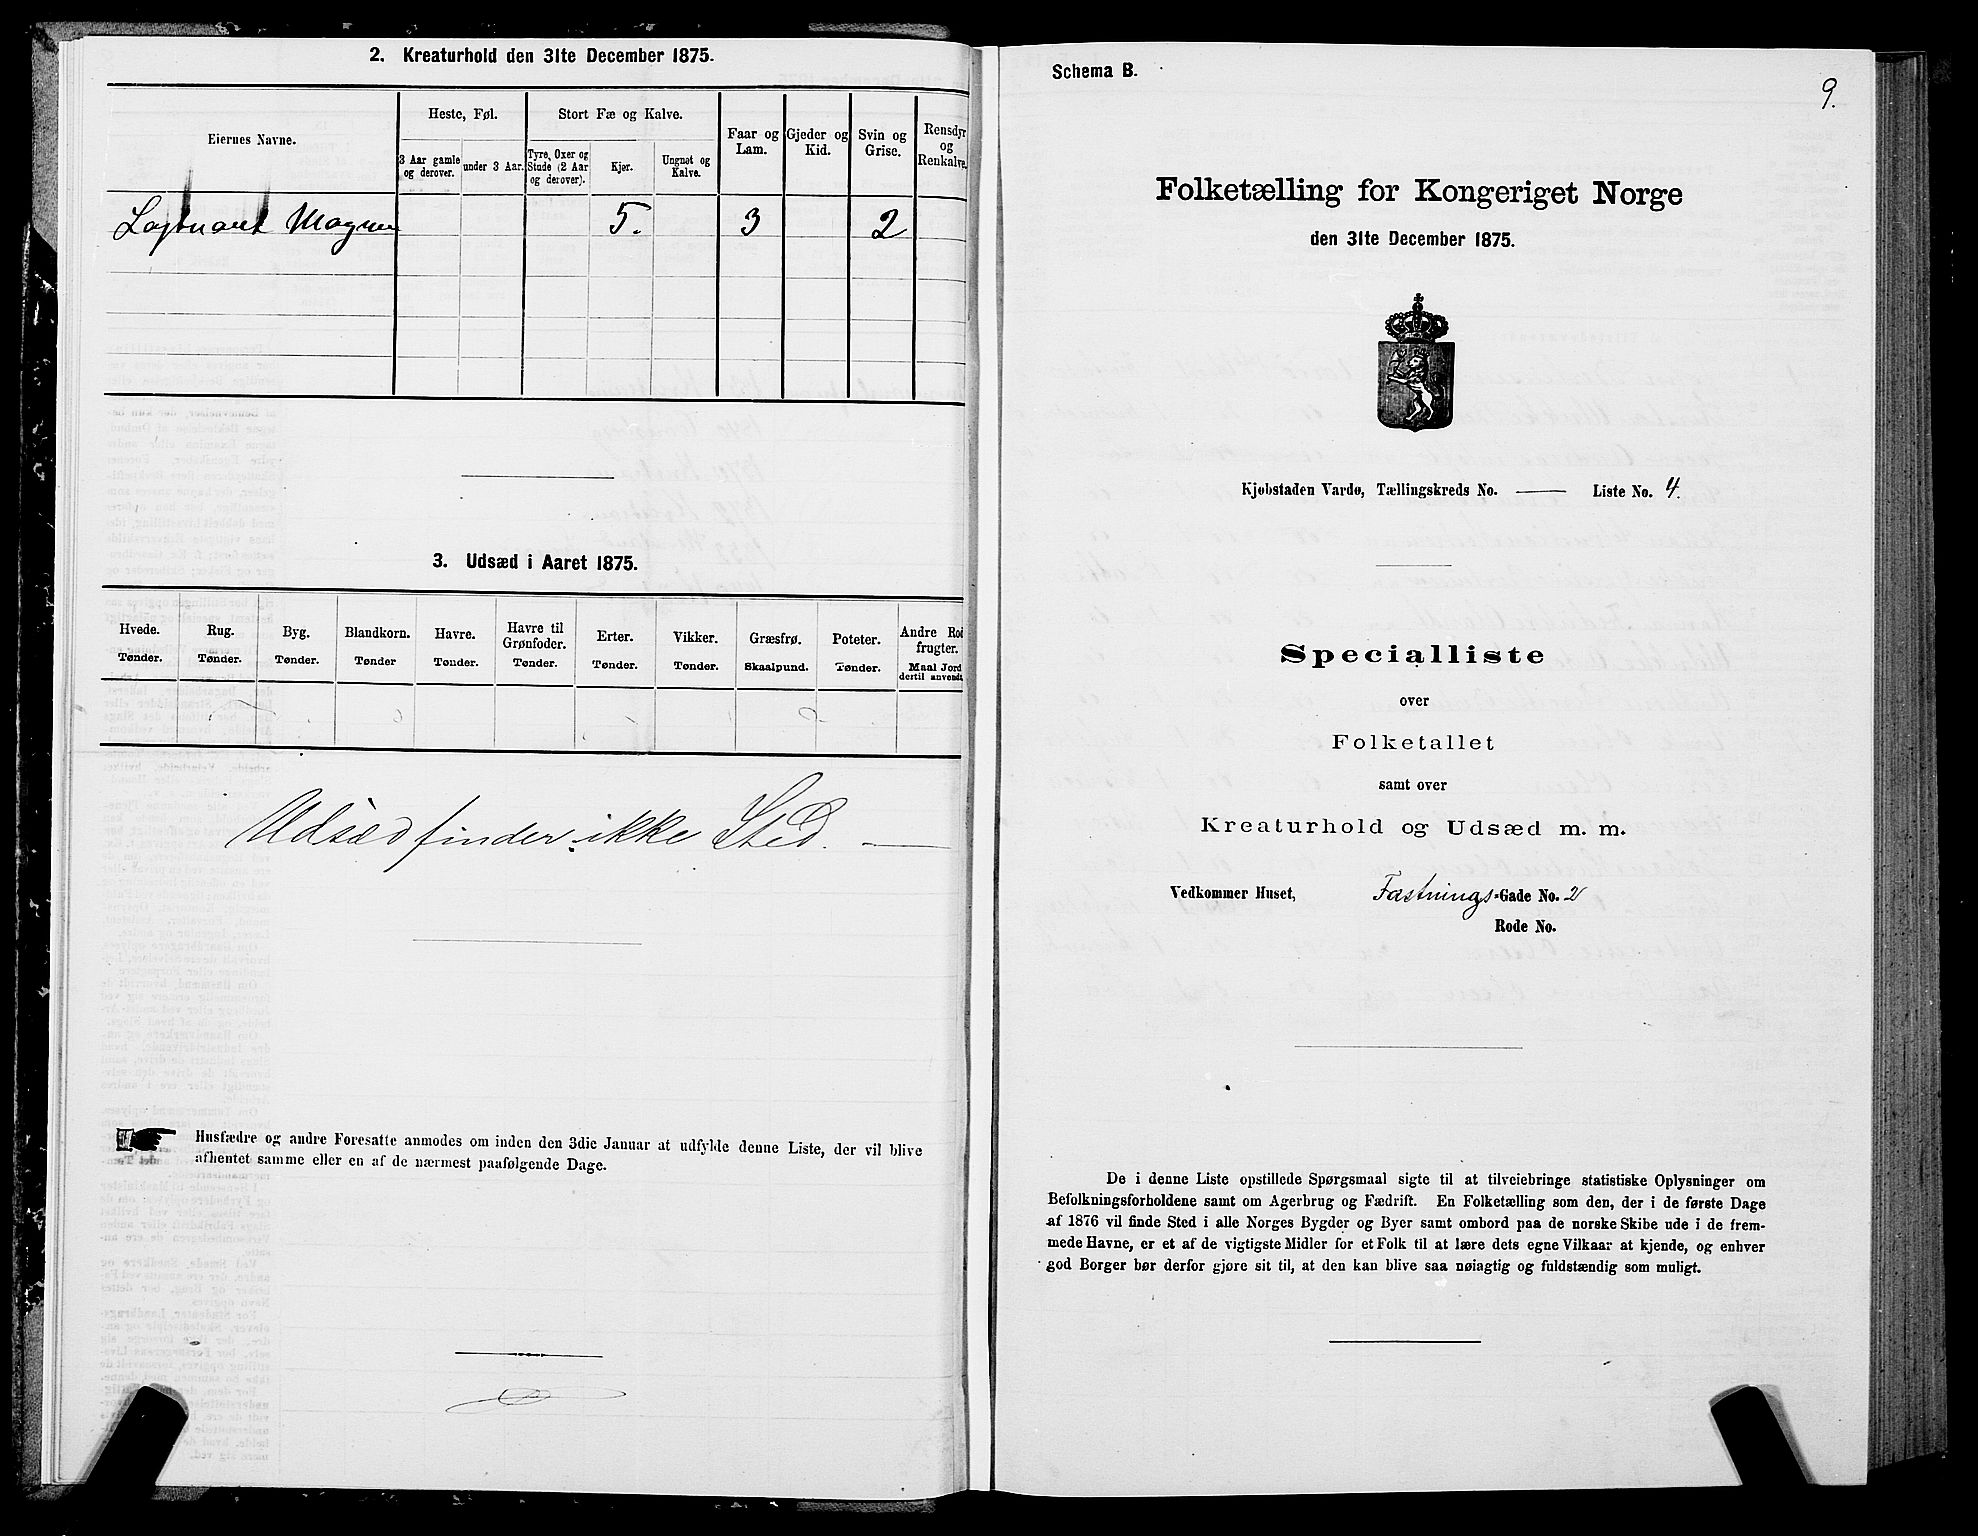 2. Kreaturhold den 31te December 1875.
Eiernes Navne.
Heste, Føl.
Stort Fæ og Kalve.
Faar og Lam.
Gjeder og Kid.
Svin og Grise.
Rensdyr og Renkalve.
3 Aar gamle og derover.
under 3 Aar.
Tyre, Oxer og Stude (2 Aar og derover).
Kjør.
Ungnøt og Kalve.
Magnus 5. 3 2
3. Udsæd i Aaret 1875.
Hvede. Rug. Byg. Blandkorn. Havre. Havre til Grønfoder. Erter. Vikker. Græsfrø. Poteter. Andre Rodfrugter.
Tønder. Tønder. Tønder. Tønder Tønder. Tønder. Tønder. Tønder. Skaalpund. Tønder. Maal Jord dertil anvendt.
Udsæd finder ikke Sted.
Husfædre og andre Foresatte anmodes om inden den 3die Januar at udfylde denne Liste, der vil blive
afhentet samme eller en af de nærmest paafølgende Dage.
Schema B.
9.
Folketælling for Kongeriget Norge
den 31te December 1875.
Kjøbstaden Vardø, Tællingskreds No. — Liste No. 4.
Specialliste
over
Folketallet
samt over
Kreaturhold og Udsæd m. m.
Vedkommer Huset, Fæstnings-Gade No. 2
Rode No.
De i denne Liste opstillede Spørgsmaal sigte til at tilveiebringe statistiske Oplysninger om
Befolkningsforholdene samt om Agerbrug og Fædrift. En Folketælling som den, der i de første Dage
af 1876 vil finde Sted i alle Norges Bygder og Byer samt ombord paa de norske Skibe ude i de frem-
mede Havne, er et af de vigtigste Midler for et Folk til at lære dets egne Vilkaar at kjende, og enhver
god Borger bør derfor gjøre sit til, at den kan blive saa nøiagtig og fuldstændig som muligt.